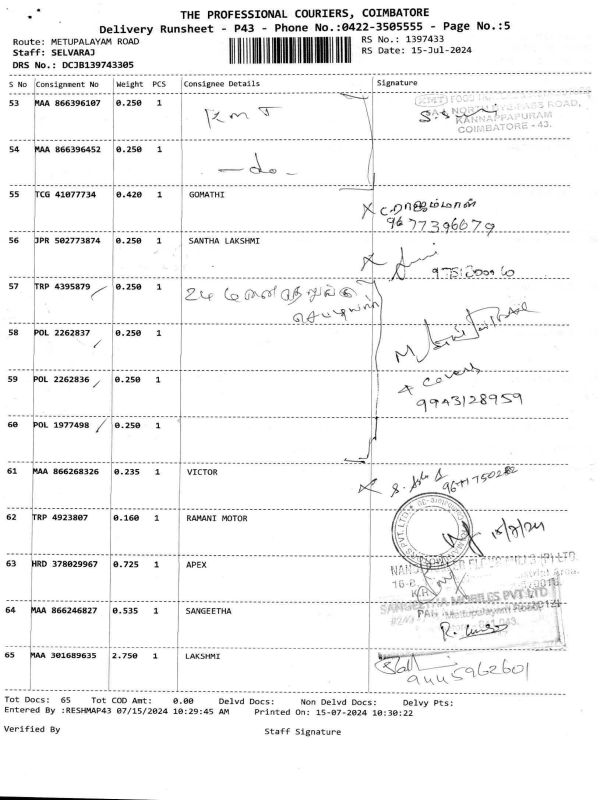 THE PROFESSIONAL COURIERS, COIMBATORE
Delivery Runsheet - P43 - Phone No.:0422-3505555 - Page No.:5
Route: METUPALAYAM ROAD
RS No.: 1397433
Staff: SELVARAJ
RS Date: 15-Jul-2024
DRS No.: DCJB139743305
S No Consignment No Weight PCS Consignee Details Signature
53 MAA 866396107 0.250 1 KMT
NORTH BYE-PASS ROAD,
KANNAPPAPURAM
COIMBATORE - 43.
54 MAA 866396452 0.250 1 -do-
55 TCG 41077734 0.420 1 GOMATHI
9677396679
56 JPR 502773874 0.250 1 SANTHA LAKSHMI
57 TRP 4395879 0.250 1
58 POL 2262837 0.250 1
59 POL 2262836 0.250 1
4 Covers
9943128959
60 POL 1977498 0.250 1
61 MAA 866268326 0.235 1 VICTOR
62 TRP 4923807 0.160 1 RAMANI MOTOR
63 HRD 378029967 0.725 1 APEX
64 MAA 866246827 0.535 1 SANGEETHA
SANGEETHA MOBILES PVT LTD
65 MAA 301689635 2.750 1 LAKSHMI
9445962601
Tot Docs: 65 Tot COD Amt: 0.00 Delvd Docs: Non Delvd Docs: Delvy Pts:
Entered By :RESHMAP43 07/15/2024 10:29:45 AM Printed On: 15-07-2024 10:30:22
Verified By
Staff Signature